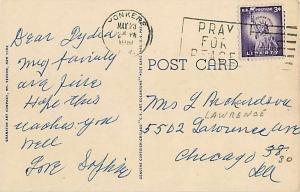 YONKERS
MAY 23
PM
PRAY
FOR
PEACE
U.S. POSTAGE
3¢
LIBERTY
POST CARD
Dear Lydia
my family
are fine
Hope this
reaches you
well
Love Sophie
Mrs L Richardson
LAWRENCE
5502 Lawrence Ave
Chicago 38 30
Ill